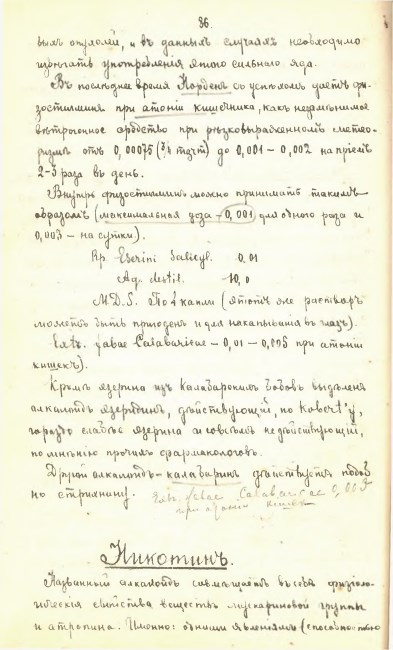 86.
выхъ опухолей, и въ данныхъ случаяхъ необходимо
избѣгать употребленія этого сильнаго яда.
Въ послѣднее время Норденъ съ успѣхомъ даетъ фи-
зостигминъ при атоніи кишечника, какъ незамѣнимое
вѣтрогонное средство при рѣзковыраженномъ метео-
ризмѣ отъ 0,00075 до 0,001 – 0,002 на пріемъ
2-3 раза въ день.
Внутрь физостигминъ можно принимать такимъ
образомъ (максимальная доза – 0,001 для одного раза и
0,003 – на сутки).
Rp. Eserini Salicyl. 0,01
Aq. destil. 10,0
M.D.S. По капли (этотъ же растворъ
можетъ быть пригоденъ и для накапыванія въ глазъ).
Extr. fabae Calabaricae – 0,01 – 0,005 при атоніи
кишекъ).
Кромѣ эзерина изъ Калабарскихъ бобовъ выдѣленъ
алкалоидъ эзеридинъ, дѣйствующій, по Kobert'у,
гораздо слабѣе эзерина и совсѣмъ не дѣйствующій,
по мнѣнію прочихъ фармакологовъ.
Другой алкалоидъ – калабаринъ дѣйствуетъ подоб
но стрихнину. Extr. fabae Calabaricae 0,005
при атоніи кишекъ
Никотинъ.
Названный алкалоидъ совмѣщаетъ въ себѣ физіоло-
гическія свойства веществъ мускариновой группы
и атропина. Именно: одними явленіями (способностью